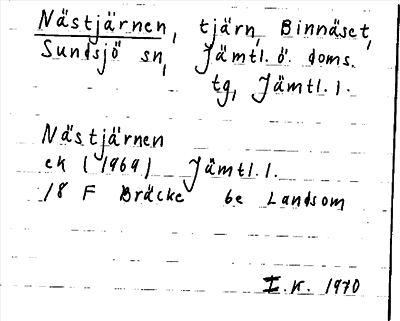 Nästjärnen, tjärn, Binnäset,
Sundsjö sn, Jämtl. ö. doms.
tg, Jämtl. l.
Nästjärnen
ek (1969) Jämtl. l.
18 F Bräcke 6e Landsom
I. K. 1970